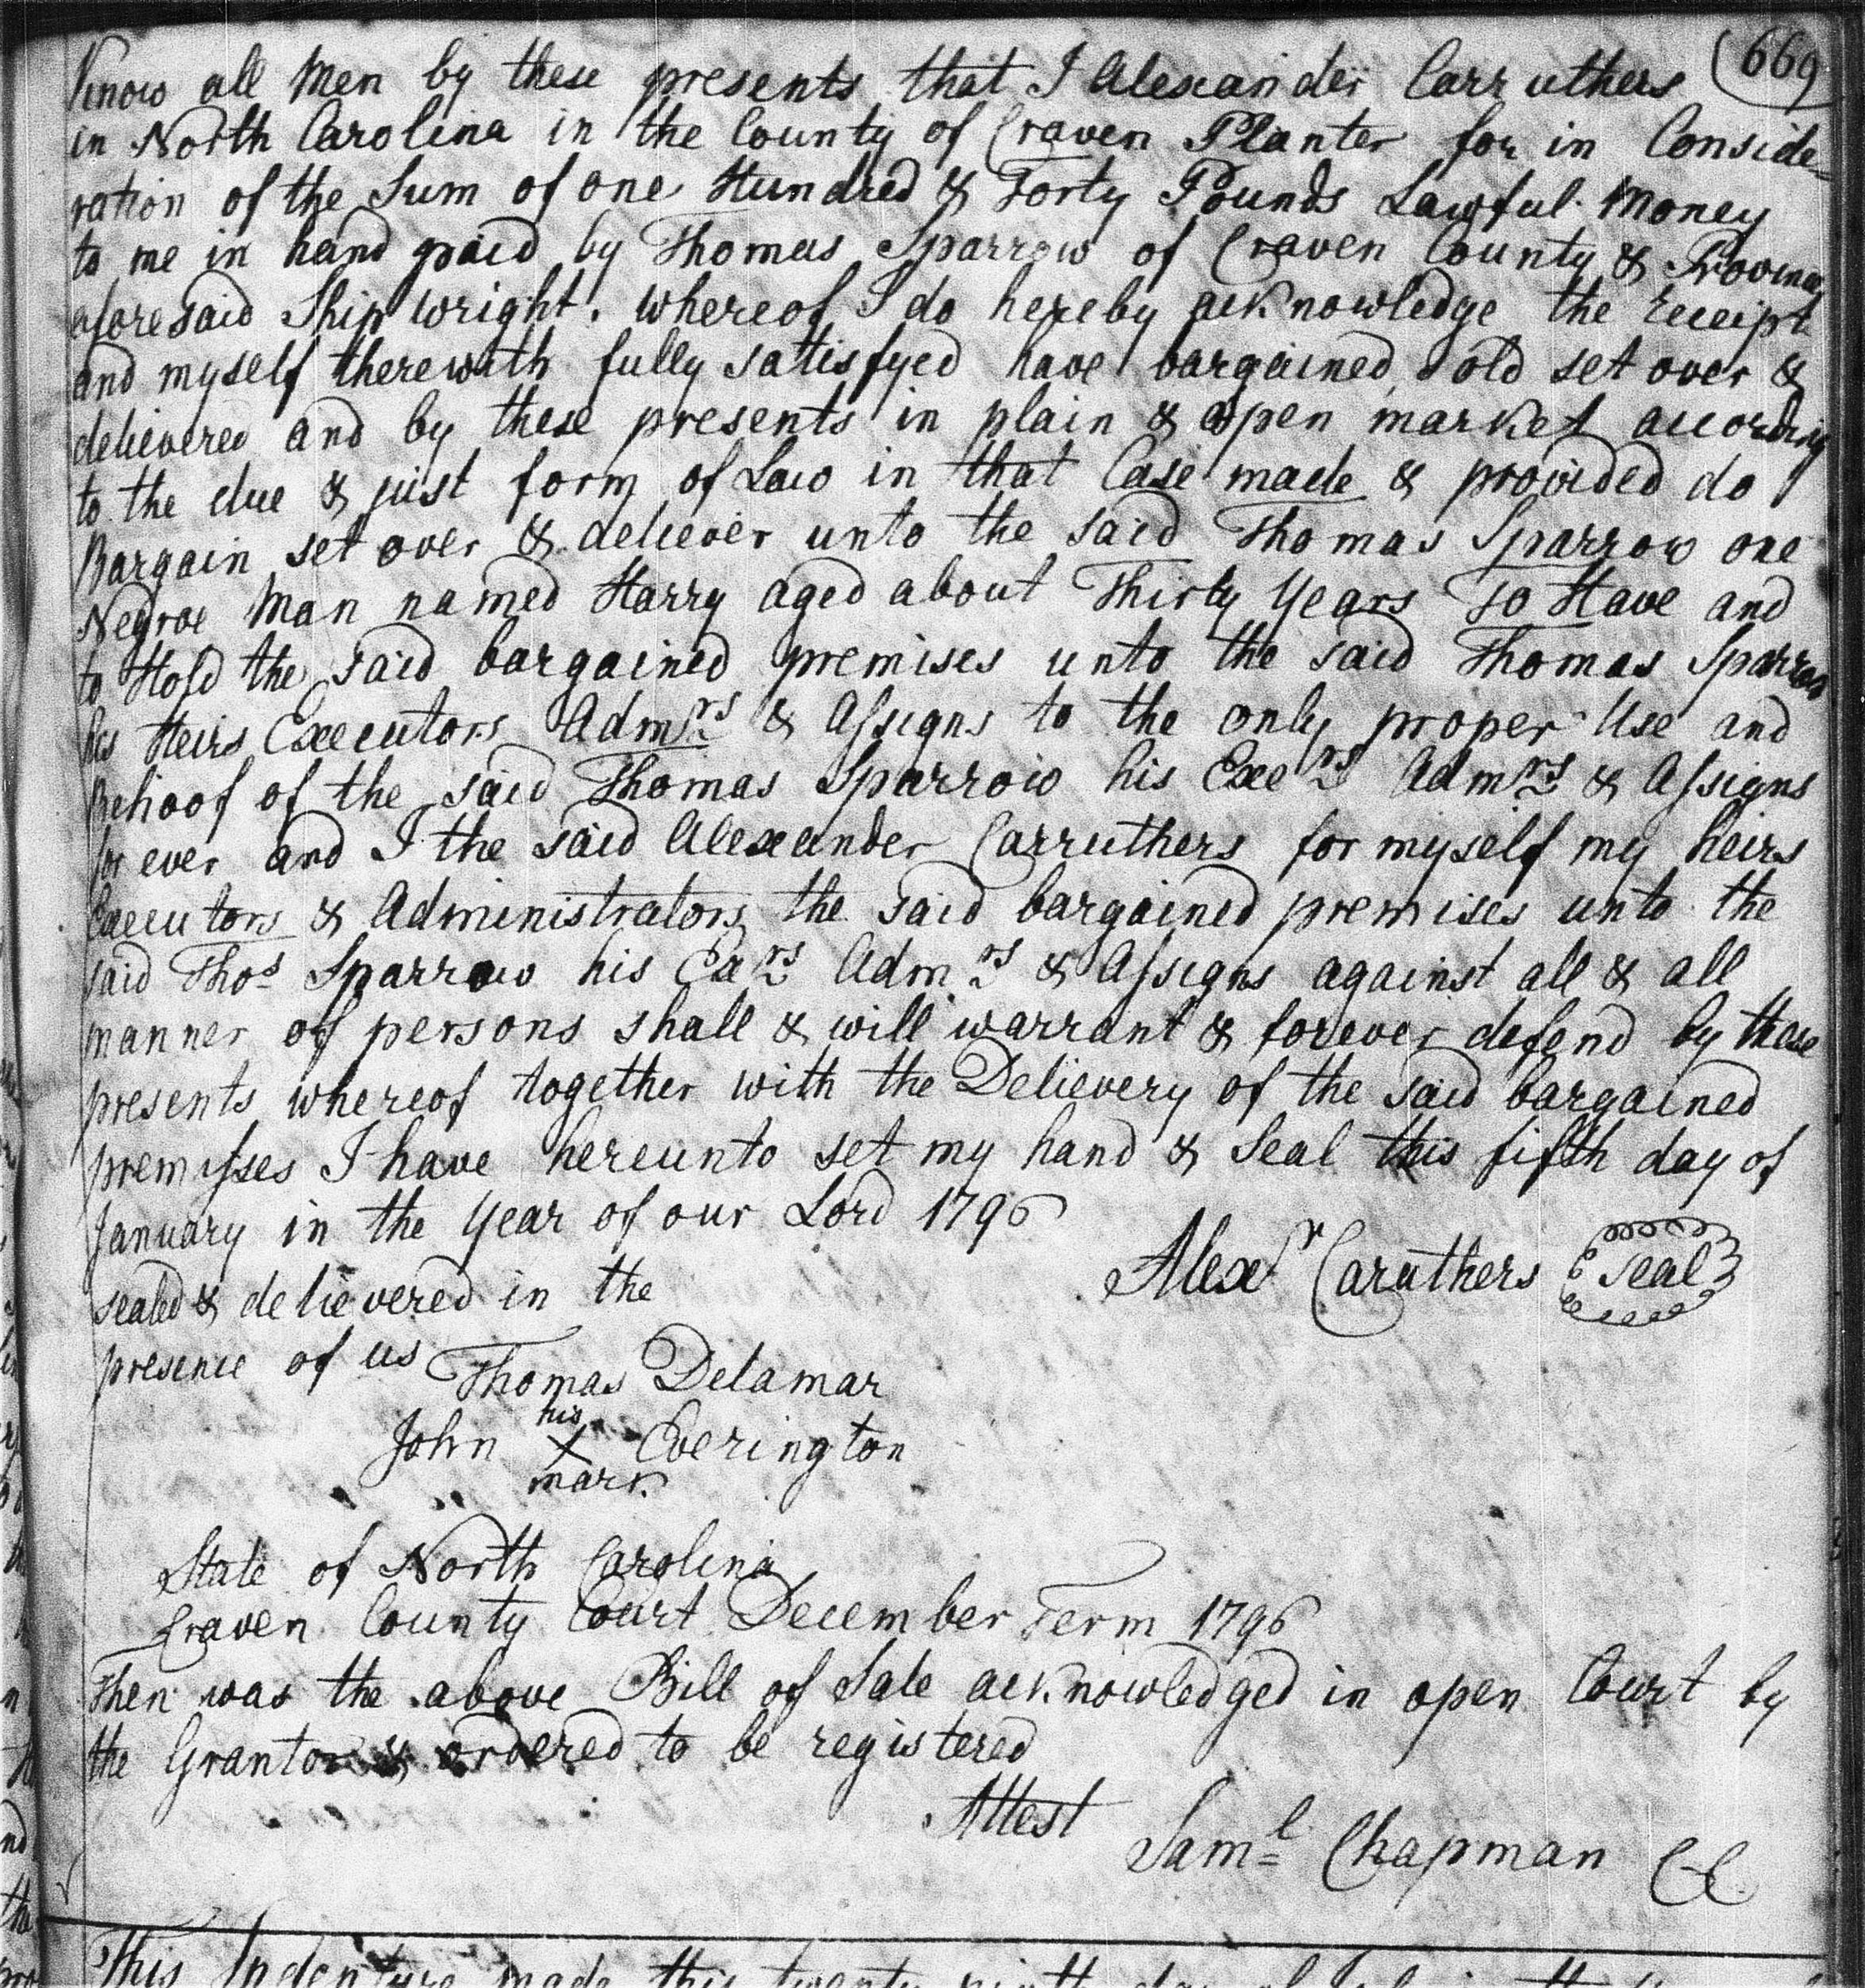 (669
Know all Men by these presents that I Alexander Carruthers
in North Carolina in the County of Craven Planter for in Conside=
ration of the Sum of one Hundred & Forty Pounds Lawful Money
to me in hand paid by Thomas Sparrow of Craven County & Province
aforesaid Ship Wright. whereof I do hereby acknowledge the receipt
and myself therewith fully satisfyed have bargained, Sold set over &
delievered and by these presents in plain & open market according
to the due & just form of Law in that Case made & provided do
Bargain set over & deliever unto the said Thomas Sparrow one
Negroe Man named Harry aged about Thirty Years To Have and
to Hold the said bargained premises unto the said Thomas Sparrow
his Heirs Executors Admrs & Assigns to the only proper Use and
Behoof of the said Thomas Sparrow his Exers Admrs & Assigns
for ever and I the said Alexander Carruthers for myself my heirs
Executors & Administrators the said bargained premises unto the
said Thos Sparrow his Exrs Admrs & Assigns against all & all
manner of persons shall & will warrant & forever defend by these
presents whereof together with the Delievery of the said bargained
premisses I have hereunto set my hand & Seal this fifth day of
January in the Year of our Lord 1796
Alexr Caruthers Seal
sealed & delievered in the
presence of us Thomas Delamar
his
John X Everington
mark
State of North Carolina
Craven County Court December Term 1796
Then was the above Bill of Sale acknowledged in open Court by
the Grantor & ordered to be registered
Attest Saml Chapman CC
This Indenture made this twenty ninth day of